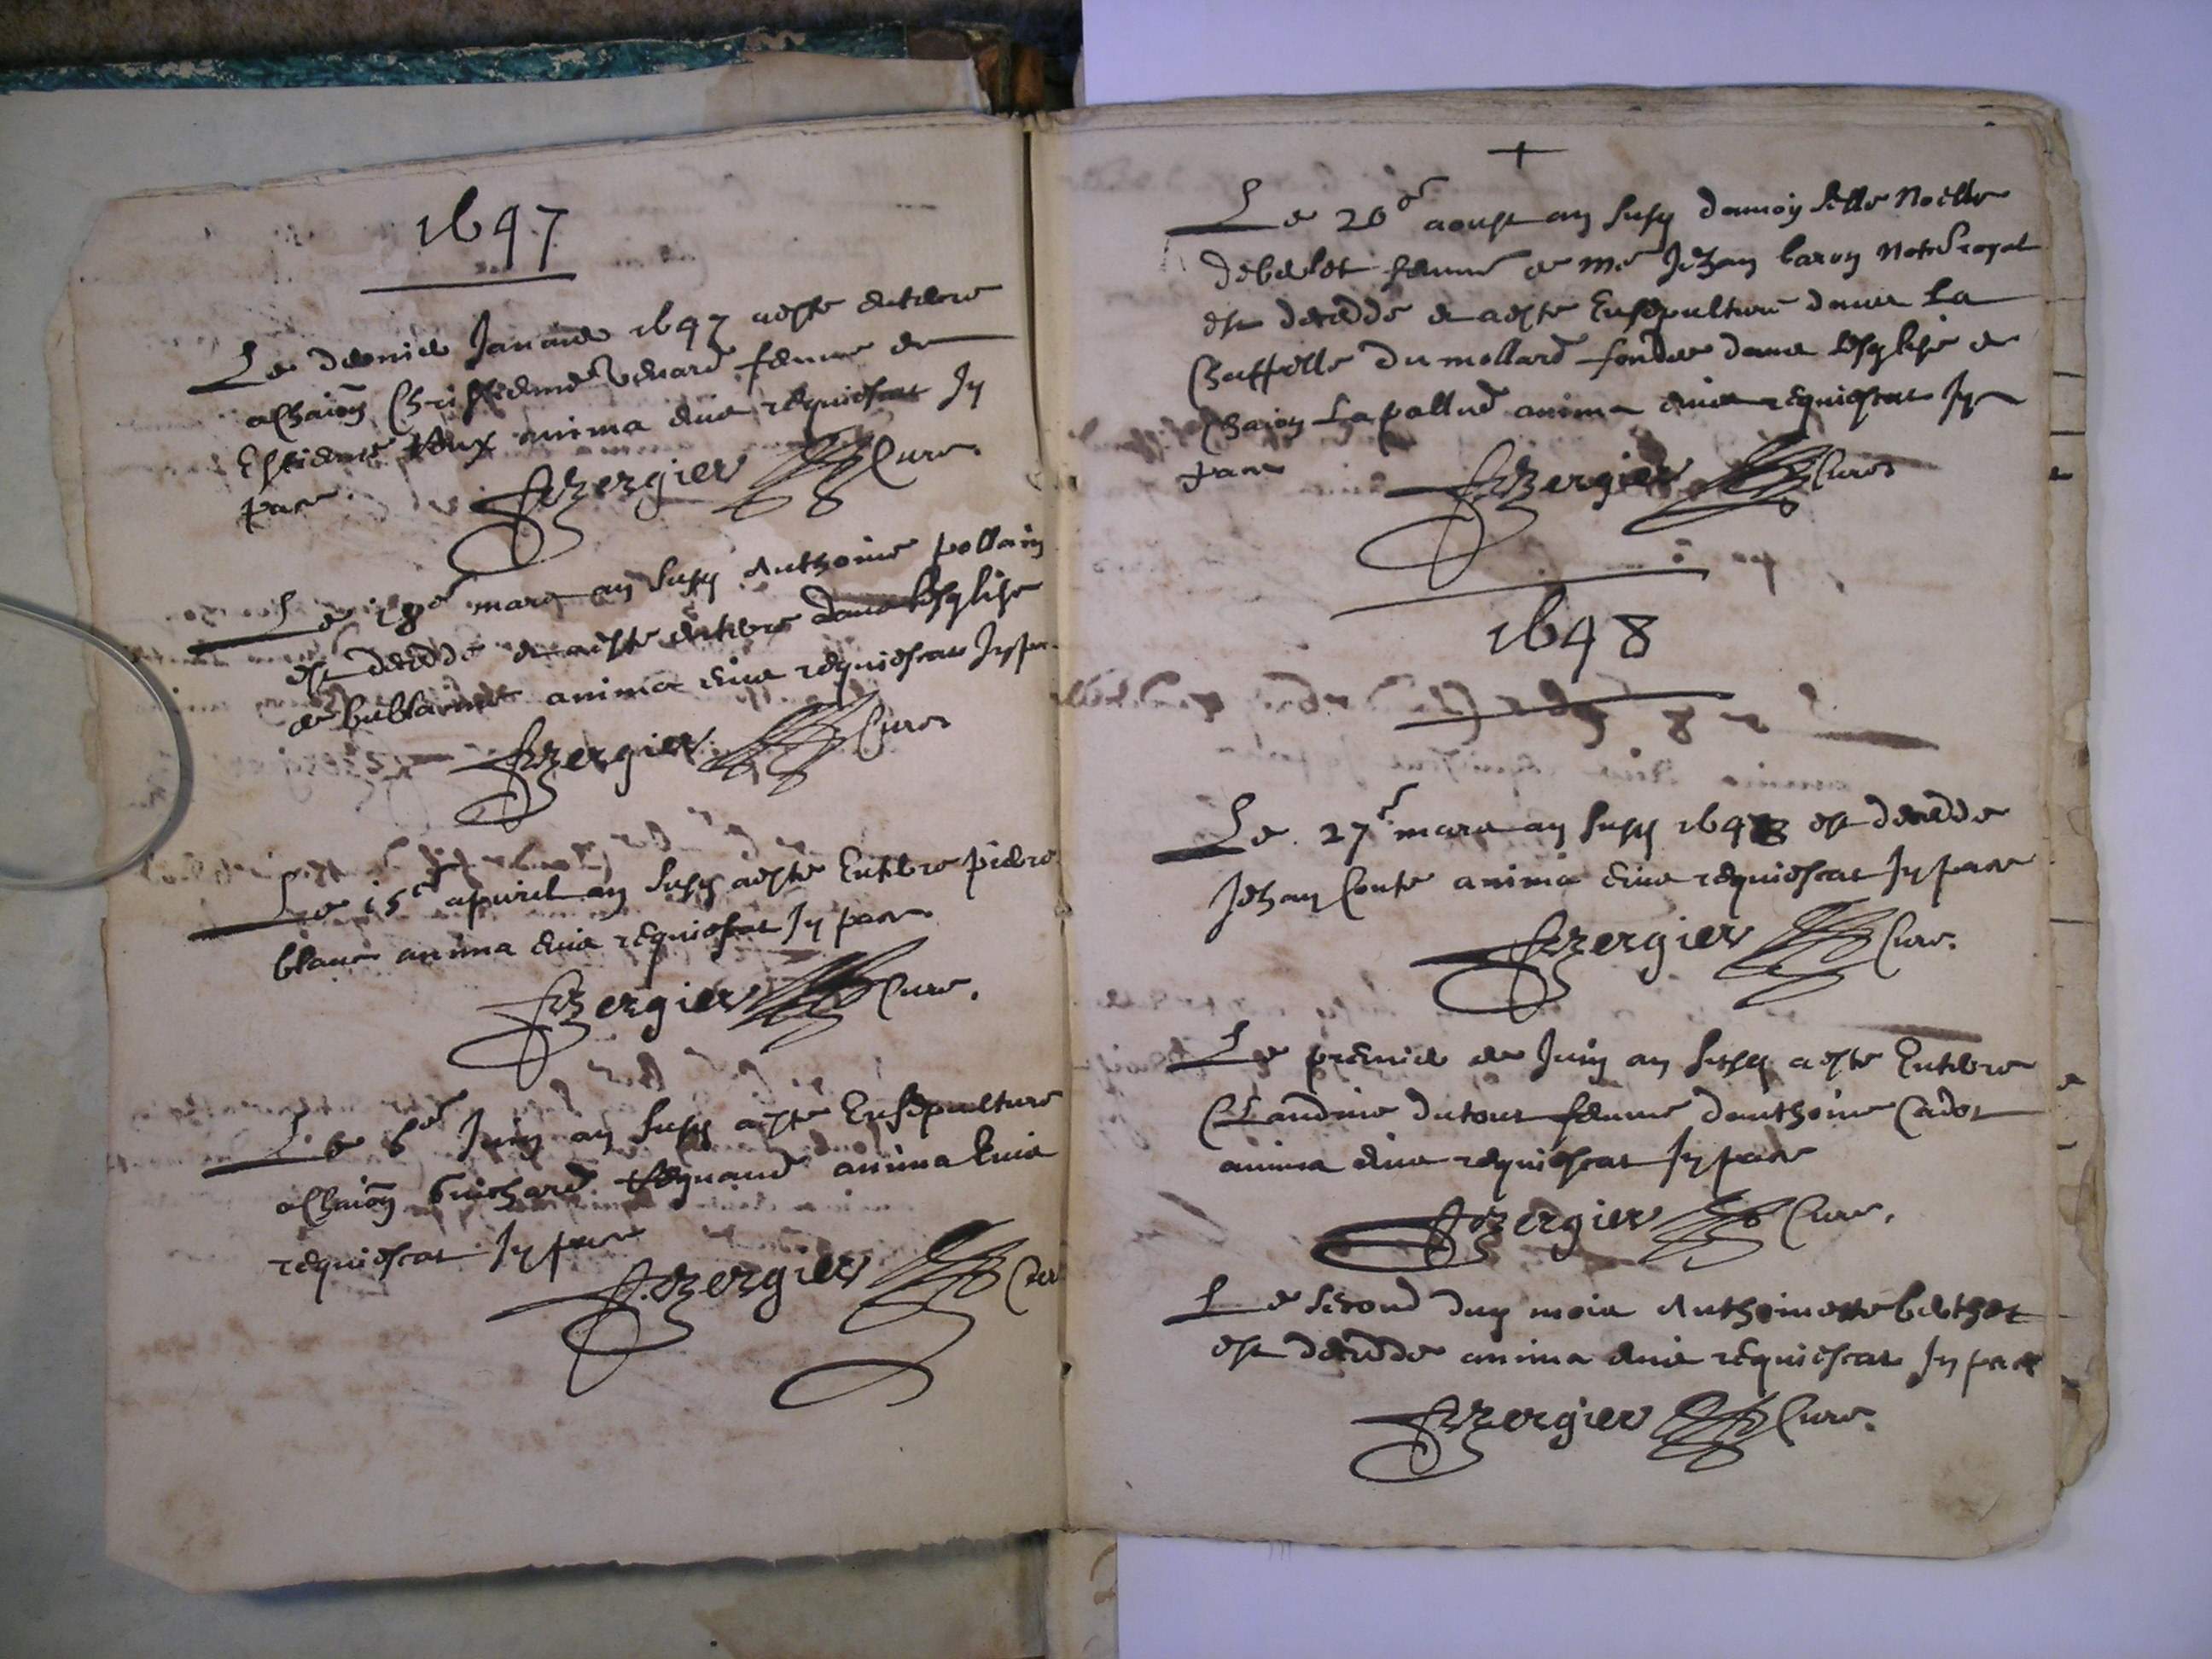 1647
Le dernier Janvier 1647 aeste enterre
a Chaion Christienne Venard femme de
Estienne Roux anima eius requiescat In
pace. Bergier Cure.
Le 18e mars an susd Anthoine pollain
est decedde et aeste enterre dans lesglise
de anima eius requiescat In pa
Bergier Cure
Le 15e apvril an susd aeste Enterre pierre
blanc anima eius requiescat In pace
Bergier Cure.
Le 6e Juin an susd aeste Ensepulture
a Chaion Guichard Reynaud anima Eius
requiescat In pace
Bergier Cur
+
Le 20e aoust an susd damoyselle Noelle
debelet femme de Me Jehan baron Notre royal
est decedde et aeste Ensepulture dans La
Chappelle du mollard fondee dans lesglise de
Chaion Lapallud anima eius requiescat In
pace Bergier Cure
1648
Le 27e mars an susd 1648 est decedde
Jehan Conte anima eius requiescat In pace
Bergier Cure.
Le premier de Juin an susd aeste Enterre
Claudine dutour femme danthoine Cadot
anima eius requiescat In pace
Bergier Cure.
Le second dud mois Anthoinette berthet
est decedde anima eius requiescat In pace
Bergier Cure.